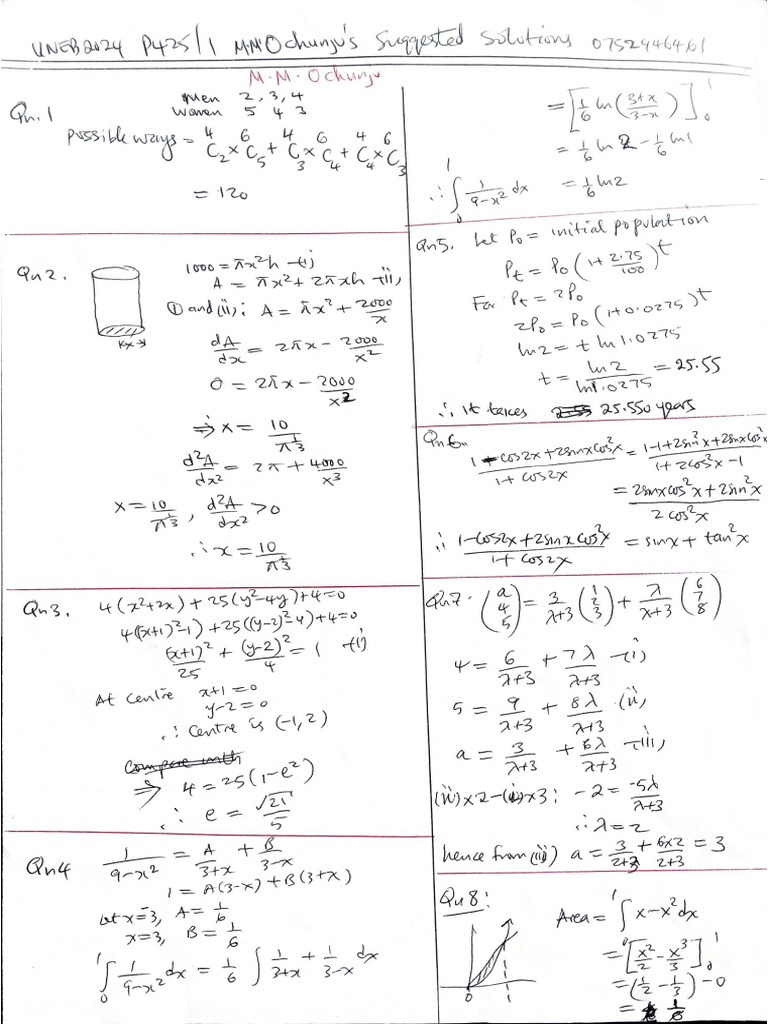 UNEB 2024 P425/1 M.M. Ochunju's Suggested Solutions 0752446461
M.M. Ochunju
Qn.1
Men 2, 3, 4
Women 5 4 3
possible ways = ⁴C₂ × ⁶C₅ + ⁴C₃ × ⁶C₄ + ⁴C₄ × ⁶C₃
= 120
Qn 2.
x
1000 = πx²h —(i)
A = πx² + 2πxh —(ii)
① and (ii); A = πx² + 2000/x
dA/dx = 2πx − 2000/x²
0 = 2πx − 2000/x²
⇒ x = 10/π^(1/3)
d²A/dx² = 2π + 4000/x³
x = 10/π^(1/3), d²A/dx² > 0
∴ x = 10/π^(1/3)
Qn 3.
4(x²+2x) + 25(y²−4y) + 4 = 0
4((x+1)²−1) + 25((y−2)²−4) + 4 = 0
(x+1)²/25 + (y−2)²/4 = 1 —(i)
At centre x+1 = 0
y−2 = 0
∴ Centre is (−1, 2)
Compare with
⇒ 4 = 25(1−e²)
∴ e = √21/5
Qn 4
1/(9−x²) = A/(3+x) + B/(3−x)
1 = A(3−x) + B(3+x)
at x=−3, A = 1/6
x=3, B = 1/6
∫₀¹ 1/(9−x²) dx = 1/6 ∫ 1/(3+x) + 1/(3−x) dx
= [1/6 ln((3+x)/(3−x))]₀¹
= 1/6 ln 2 − 1/6 ln 1
∴ ∫₀¹ 1/(9−x²) dx = 1/6 ln 2
Qn 5. Let P₀ = initial population
Pt = P₀(1 + 2.75/100)^t
For Pt = 2P₀
2P₀ = P₀(1+0.0275)^t
ln 2 = t ln 1.0275
t = ln 2/ln 1.0275 = 25.55
∴ It takes 25.550 years
Qn 6.
(1−cos2x+2sinxcos²x)/(1+cos2x) = (1−1+2sin²x+2sinxcos²x)/(1+2cos²x−1)
= (2sinxcos²x+2sin²x)/(2cos²x)
∴ (1−cos2x+2sinxcos²x)/(1+cos2x) = sinx + tan²x
Qn 7. (a 4 5) = 3/(λ+3) (1 2 3) + λ/(λ+3) (6 7 8)
4 = 6/(λ+3) + 7λ/(λ+3) —(i)
5 = 9/(λ+3) + 8λ/(λ+3) —(ii)
a = 3/(λ+3) + 6λ/(λ+3) —(iii)
(ii)×2−(i)×3: −2 = −5λ/(λ+3)
∴ λ = 2
hence from (iii) a = 3/(2+3) + 6×2/(2+3) = 3
Qn 8:
0 1
Area = ∫₀¹ x−x² dx
= [x²/2 − x³/3]₀¹
= (1/2 − 1/3) − 0
= 1/6